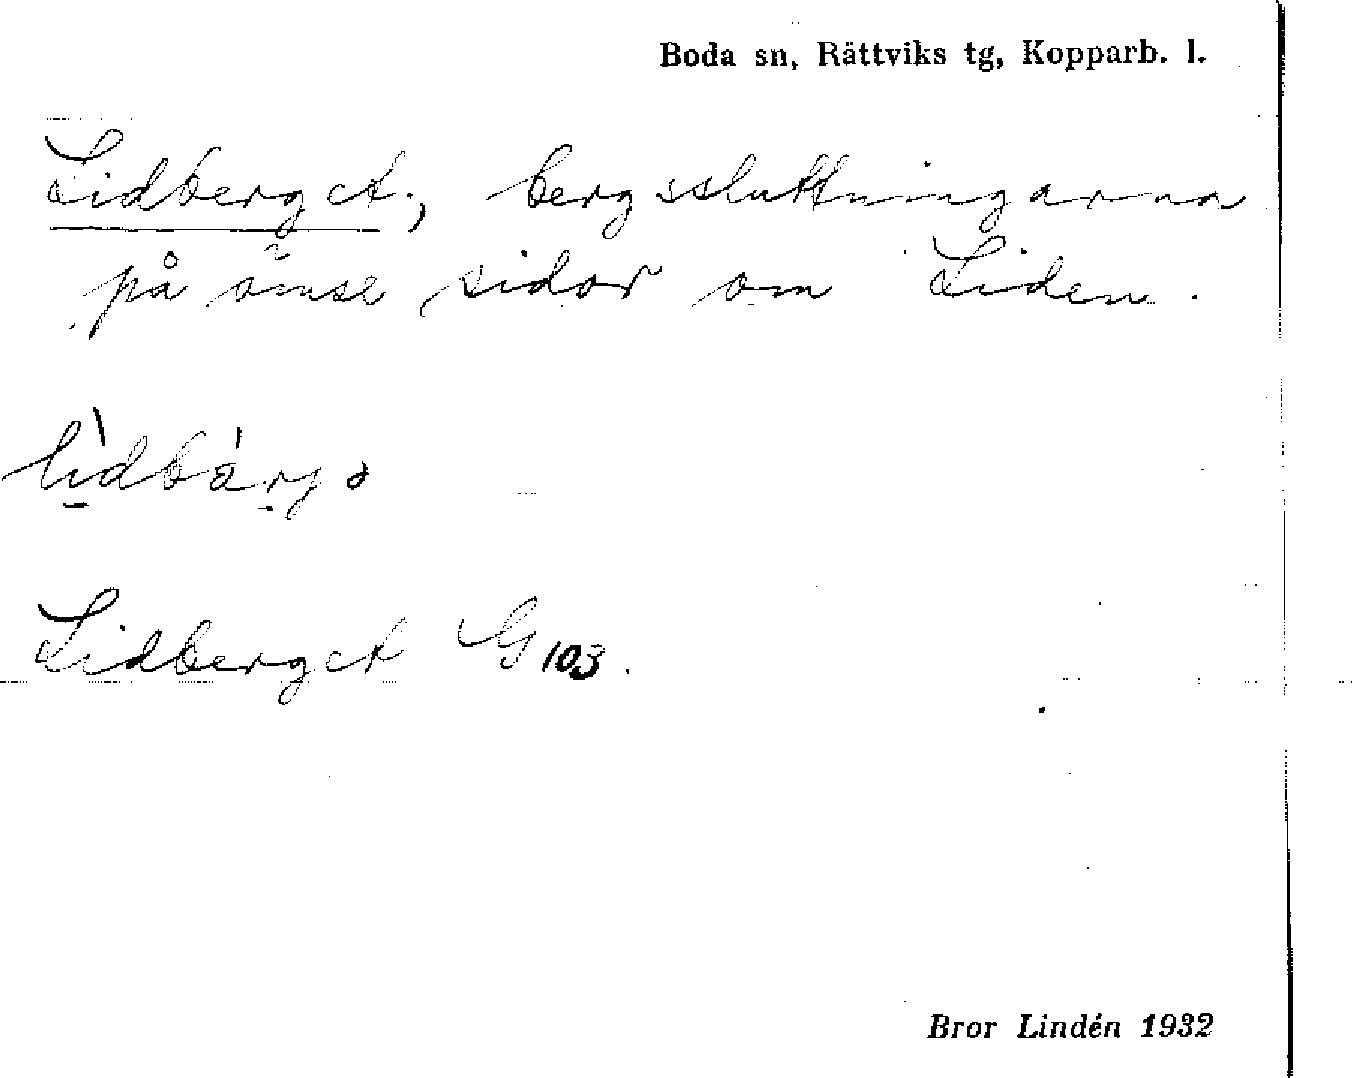 Boda sn, Rättviks tg, Kopparb. l.
Lidberget, bergssluttningarna
på ömse sidor om Liden.
Lidberget G 103.
Bror Lindén 1932